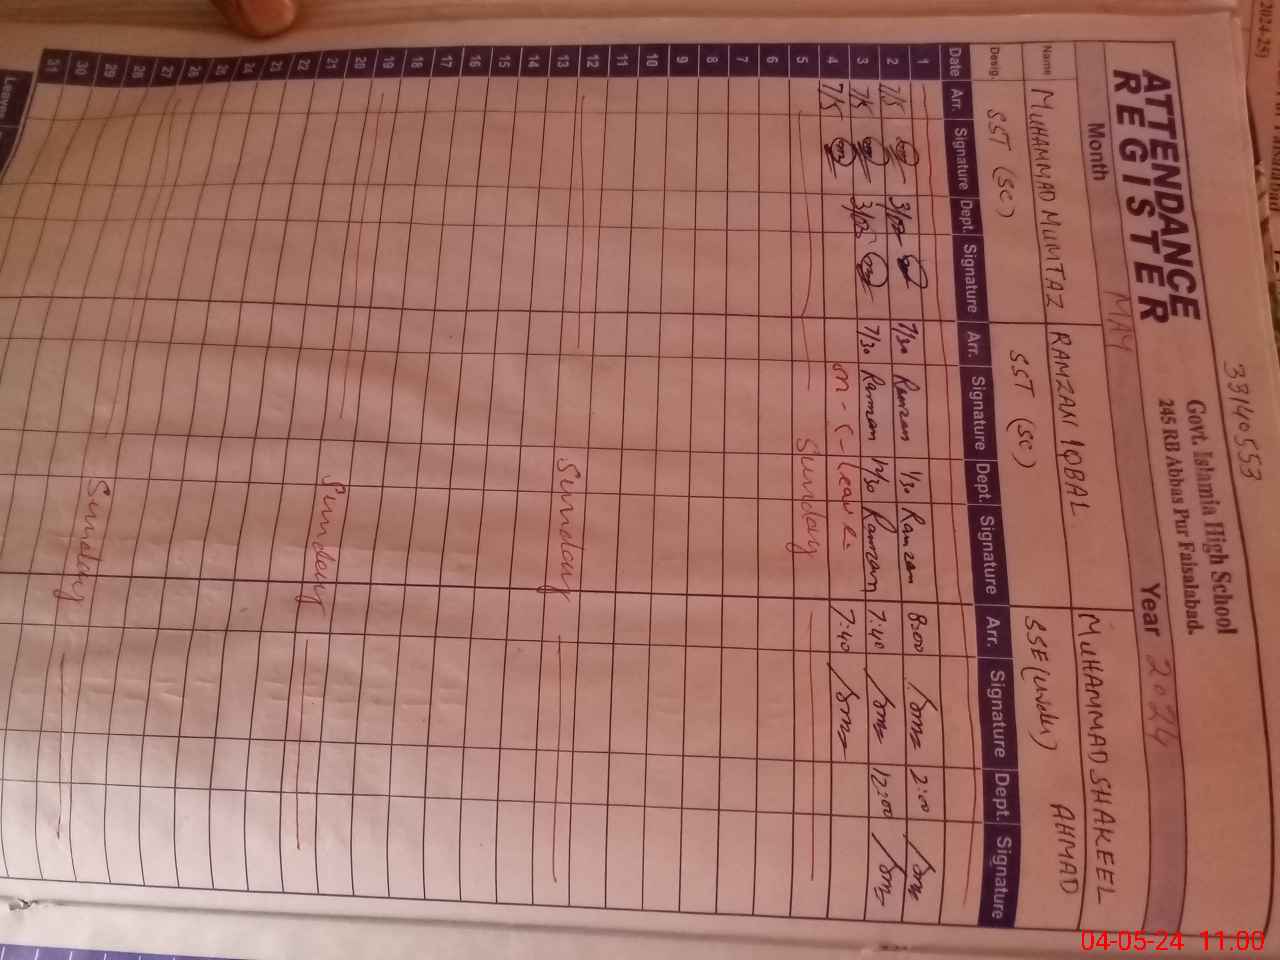 33140553
Govt. Islamia High School
245 RB Abbas Pur Faisalabad.
ATTENDANCE
REGISTER
Month MAY Year 2024
Name MUHAMMAD MUMTAZ RAMZAN IQBAL MUHAMMAD SHAKEEL AHMAD
Desig. SST (SC) SST (SC) SSE (Urdu)
Date Arr. Signature Dept. Signature Arr. Signature Dept. Signature Arr. Signature Dept. Signature
1
2 7/30 Ramzan 1/30 Ramzan 8:00 2:00
3 7/30 Ramzan 12/30 Ramzan 7:40 12:00
4 on - C - leave. 7:40
5 Sunday
6
7
8
9
10
11
12
13 Sunday
14
15
16
17
18
19
20
21 Sunday
22
23
24
25
26
27
28
29 Sunday
30
31
Leave
2024-25)
04-05-24 11.00